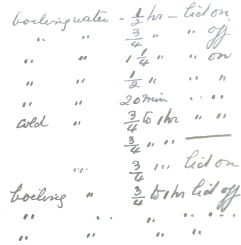 boiling water - 1/2 hr - lid on
" " 3/4 " " off
" " 1 1/4 " " on
" " 1/2 " "
" " 20 min " "
cold " 3/4 to 1 hr " "
3/4 " "
3/4 " " lid on
boiling " 3/4 to 1 hr lid off
" " " " " "